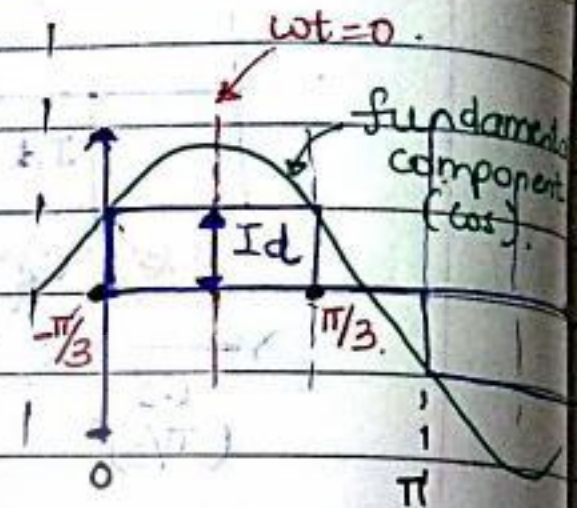 ωt=0.
fundamental
component
(cos).
Id
-π/3
π/3.
0
π